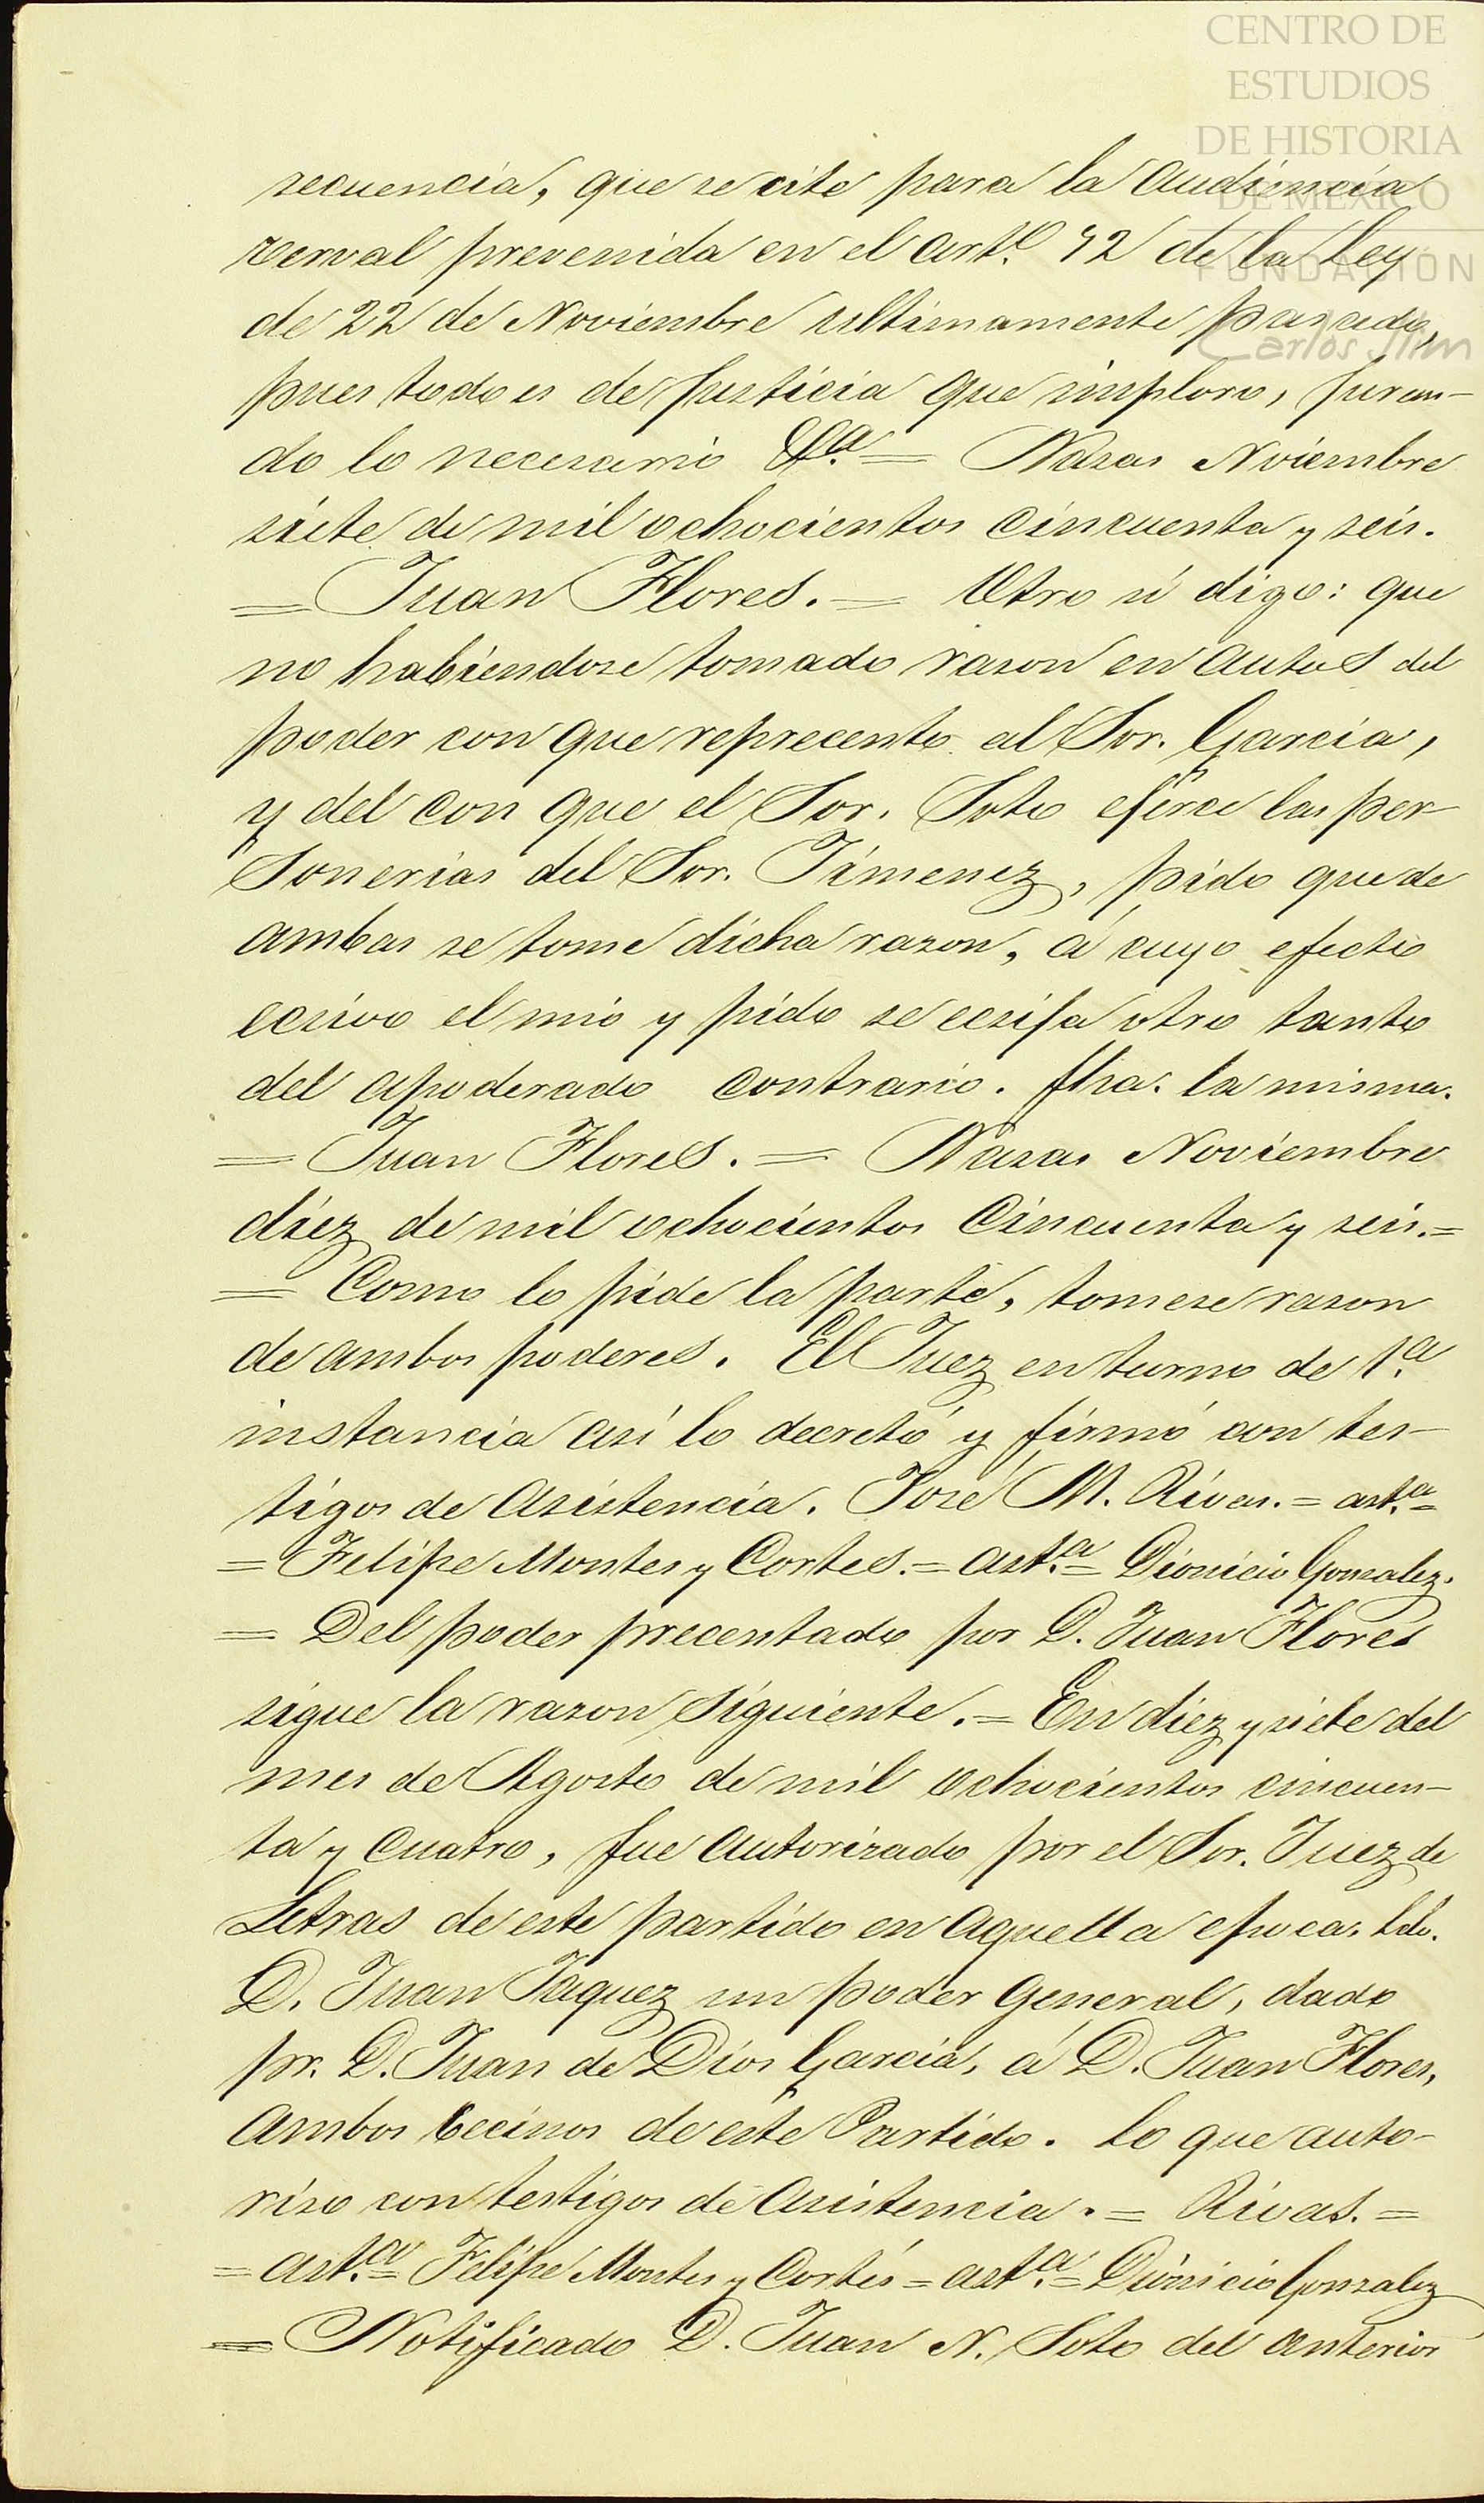 CENTRO DE
ESTUDIOS
DE HISTORIA
DE MEXICO
FUNDACIÓN
Carlos Slim
secuencia, que se cite para la audiencia
verval prevenida en el artº 92 de la Ley
de 22 de Noviembre ultimamente pasado,
pues todo es de justicia que imploro, juran-
do lo necesario &ª = Nazas Noviembre
siete de mil ochocientos cincuenta y seis.
= Juan Flores. = Otro sí digo: que
no habiendose tomado rason en autos del
poder con que reprecento al Sor. Garcia,
y del con que el Sor. Soto ejerce las per-
sonerias del Sor. Jimenez, pido que de
ambas se tome dicha rason, á cuyo efecto
ecsivo el mio y pido se ecsija otro tanto
del apoderado contrario. fha. la misma.
= Juan Flores. = Nazas Noviembre
diez de mil ochocientos cincuenta y seis. =
= Como lo pide la parte, tomese rason
de ambos poderes. El Juez en turno de 1ª
instancia así lo decretó y firmó con tes-
tigos de asistencia. José M. Rivas. = astª =
= Felipe Montes y Cortes. = astª = Dionicio Gonzalez.
= Del poder precentado por D. Juan Flores
sigue la rason siguiente. = En diez y siete del
mes de Agosto de mil ochocientos cincuen-
ta y cuatro, fue autorizado por el Sor. Juez de
Letras de este partido en aquella epoca. Ldo.
D. Juan Jaquez un poder general, dado
pr. D. Juan de Dios Garcia, á D. Juan Flores,
ambos becinos de este Partido. Lo que auto-
riso con testigos de asistencia. = Rivas. =
= astª = Felipe Montes y Cortés = astª = Dionicio Gonzalez
= Notificado D. Juan N. Soto del anterior